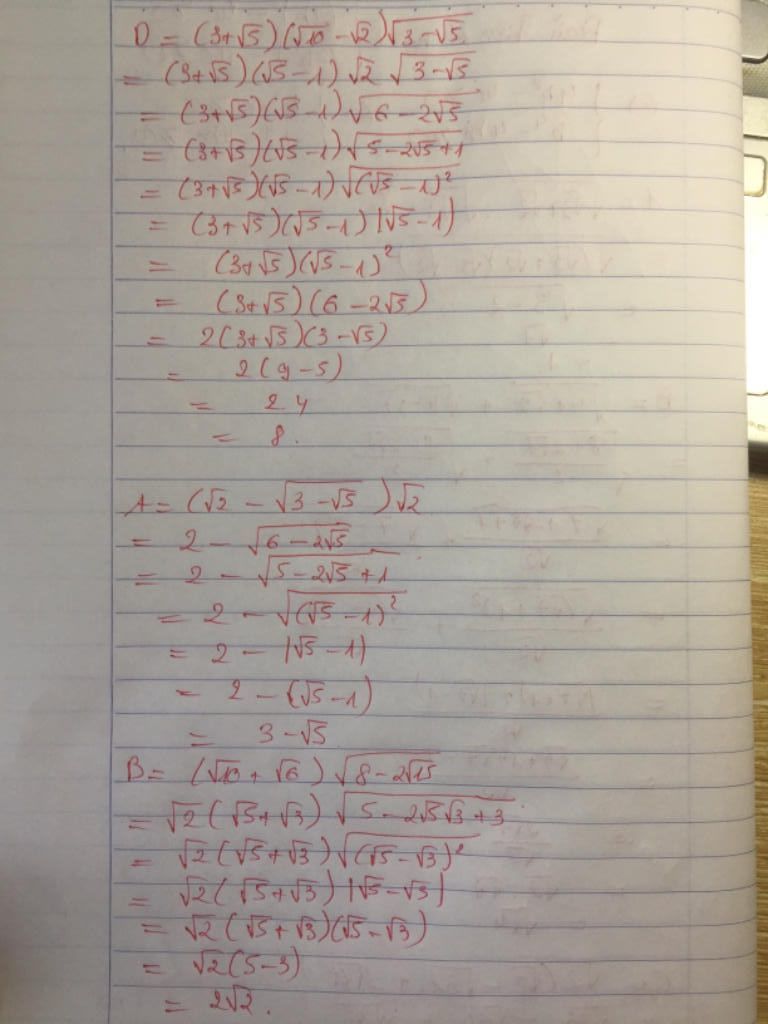 D = (3+√5)(√10 - √2)√(3-√5)
= (3+√5)(√5-1)√2 √(3-√5)
= (3+√5)(√5-1)√(6-2√5)
= (3+√5)(√5-1)√(5-2√5+1)
= (3+√5)(√5-1)√((√5-1)²)
= (3+√5)(√5-1)|√5-1|
= (3+√5)(√5-1)²
= (3+√5)(6-2√5)
= 2(3+√5)(3-√5)
= 2(9-5)
= 2.4
= 8.
A = (√2 - √(3-√5))√2
= 2 - √(6-2√5)
= 2 - √(5-2√5+1)
= 2 - √((√5-1)²)
= 2 - |√5-1|
= 2 - (√5-1)
= 3-√5
B = (√10+√6)√(8-2√15)
= √2(√5+√3)√(5-2√5√3+3)
= √2(√5+√3)√((√5-√3)²)
= √2(√5+√3)|√5-√3|
= √2(√5+√3)(√5-√3)
= √2(5-3)
= 2√2.